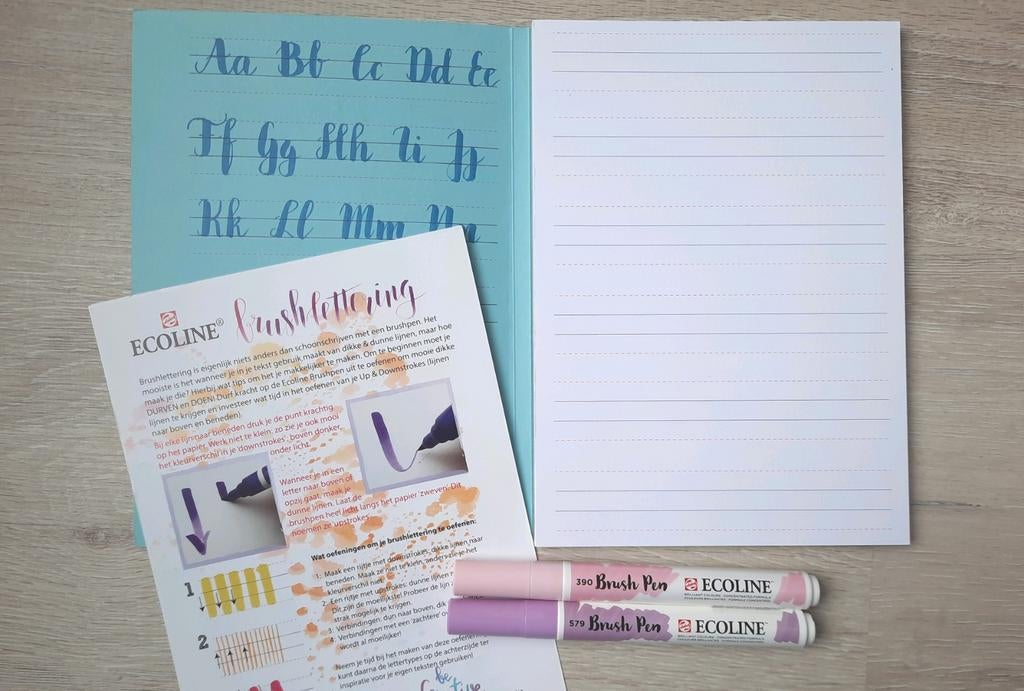 Aa Bb Cc Dd Ee
Ff Gg Hh Ii Jj
Kk Ll Mm Nn
ECOLINE® brushlettering
Brushlettering is eigenlijk niets anders dan schoonschrijven met een brushpen. Het
mooiste is het wanneer je in je tekst gebruik maakt van dikke & dunne lijnen, maar hoe
maak je die? Hierbij wat tips om het je makkelijker te maken. Om te beginnen moet je
DURVEN en DOEN! Durf kracht op de Ecoline Brushpen uit te oefenen om mooie dikke
lijnen te krijgen en investeer wat tijd in het oefenen van je Up & Downstrokes (lijnen
naar boven en beneden).
Bij elke lijn naar beneden druk je de punt krachtig
op het papier. Werk niet te klein, zo zie je ook mooi
het kleurverschil in je downstrokes; boven donker,
onder licht.
Wanneer je in een
letter naar boven of
opzij gaat, maak je
dunne lijnen. Laat de
brushpen heel licht langs het papier 'zweven'. Dit
noemen ze upstrokes.
Wat oefeningen om je brushlettering te oefenen:
1: Maak een rijtje met downstrokes: dikke lijnen naar
beneden. Maak ze niet te klein, anders zie je het
kleurverschil niet.
2: Een rijtje met upstrokes: dunne lijnen
Dit zijn de moeilijkste! Probeer de lijn
strak mogelijk te krijgen.
3: Verbindingen: dun naar boven, dik
4: Verbindingen met een 'zachtere'
wordt al moeilijker!
Neem je tijd bij het maken van deze
kunt daarna de lettertypes op de achterzijde
inspiratie voor je eigen teksten gebruiken!
1
2
be
creative
390 Brush Pen ECOLINE
579 Brush Pen ECOLINE